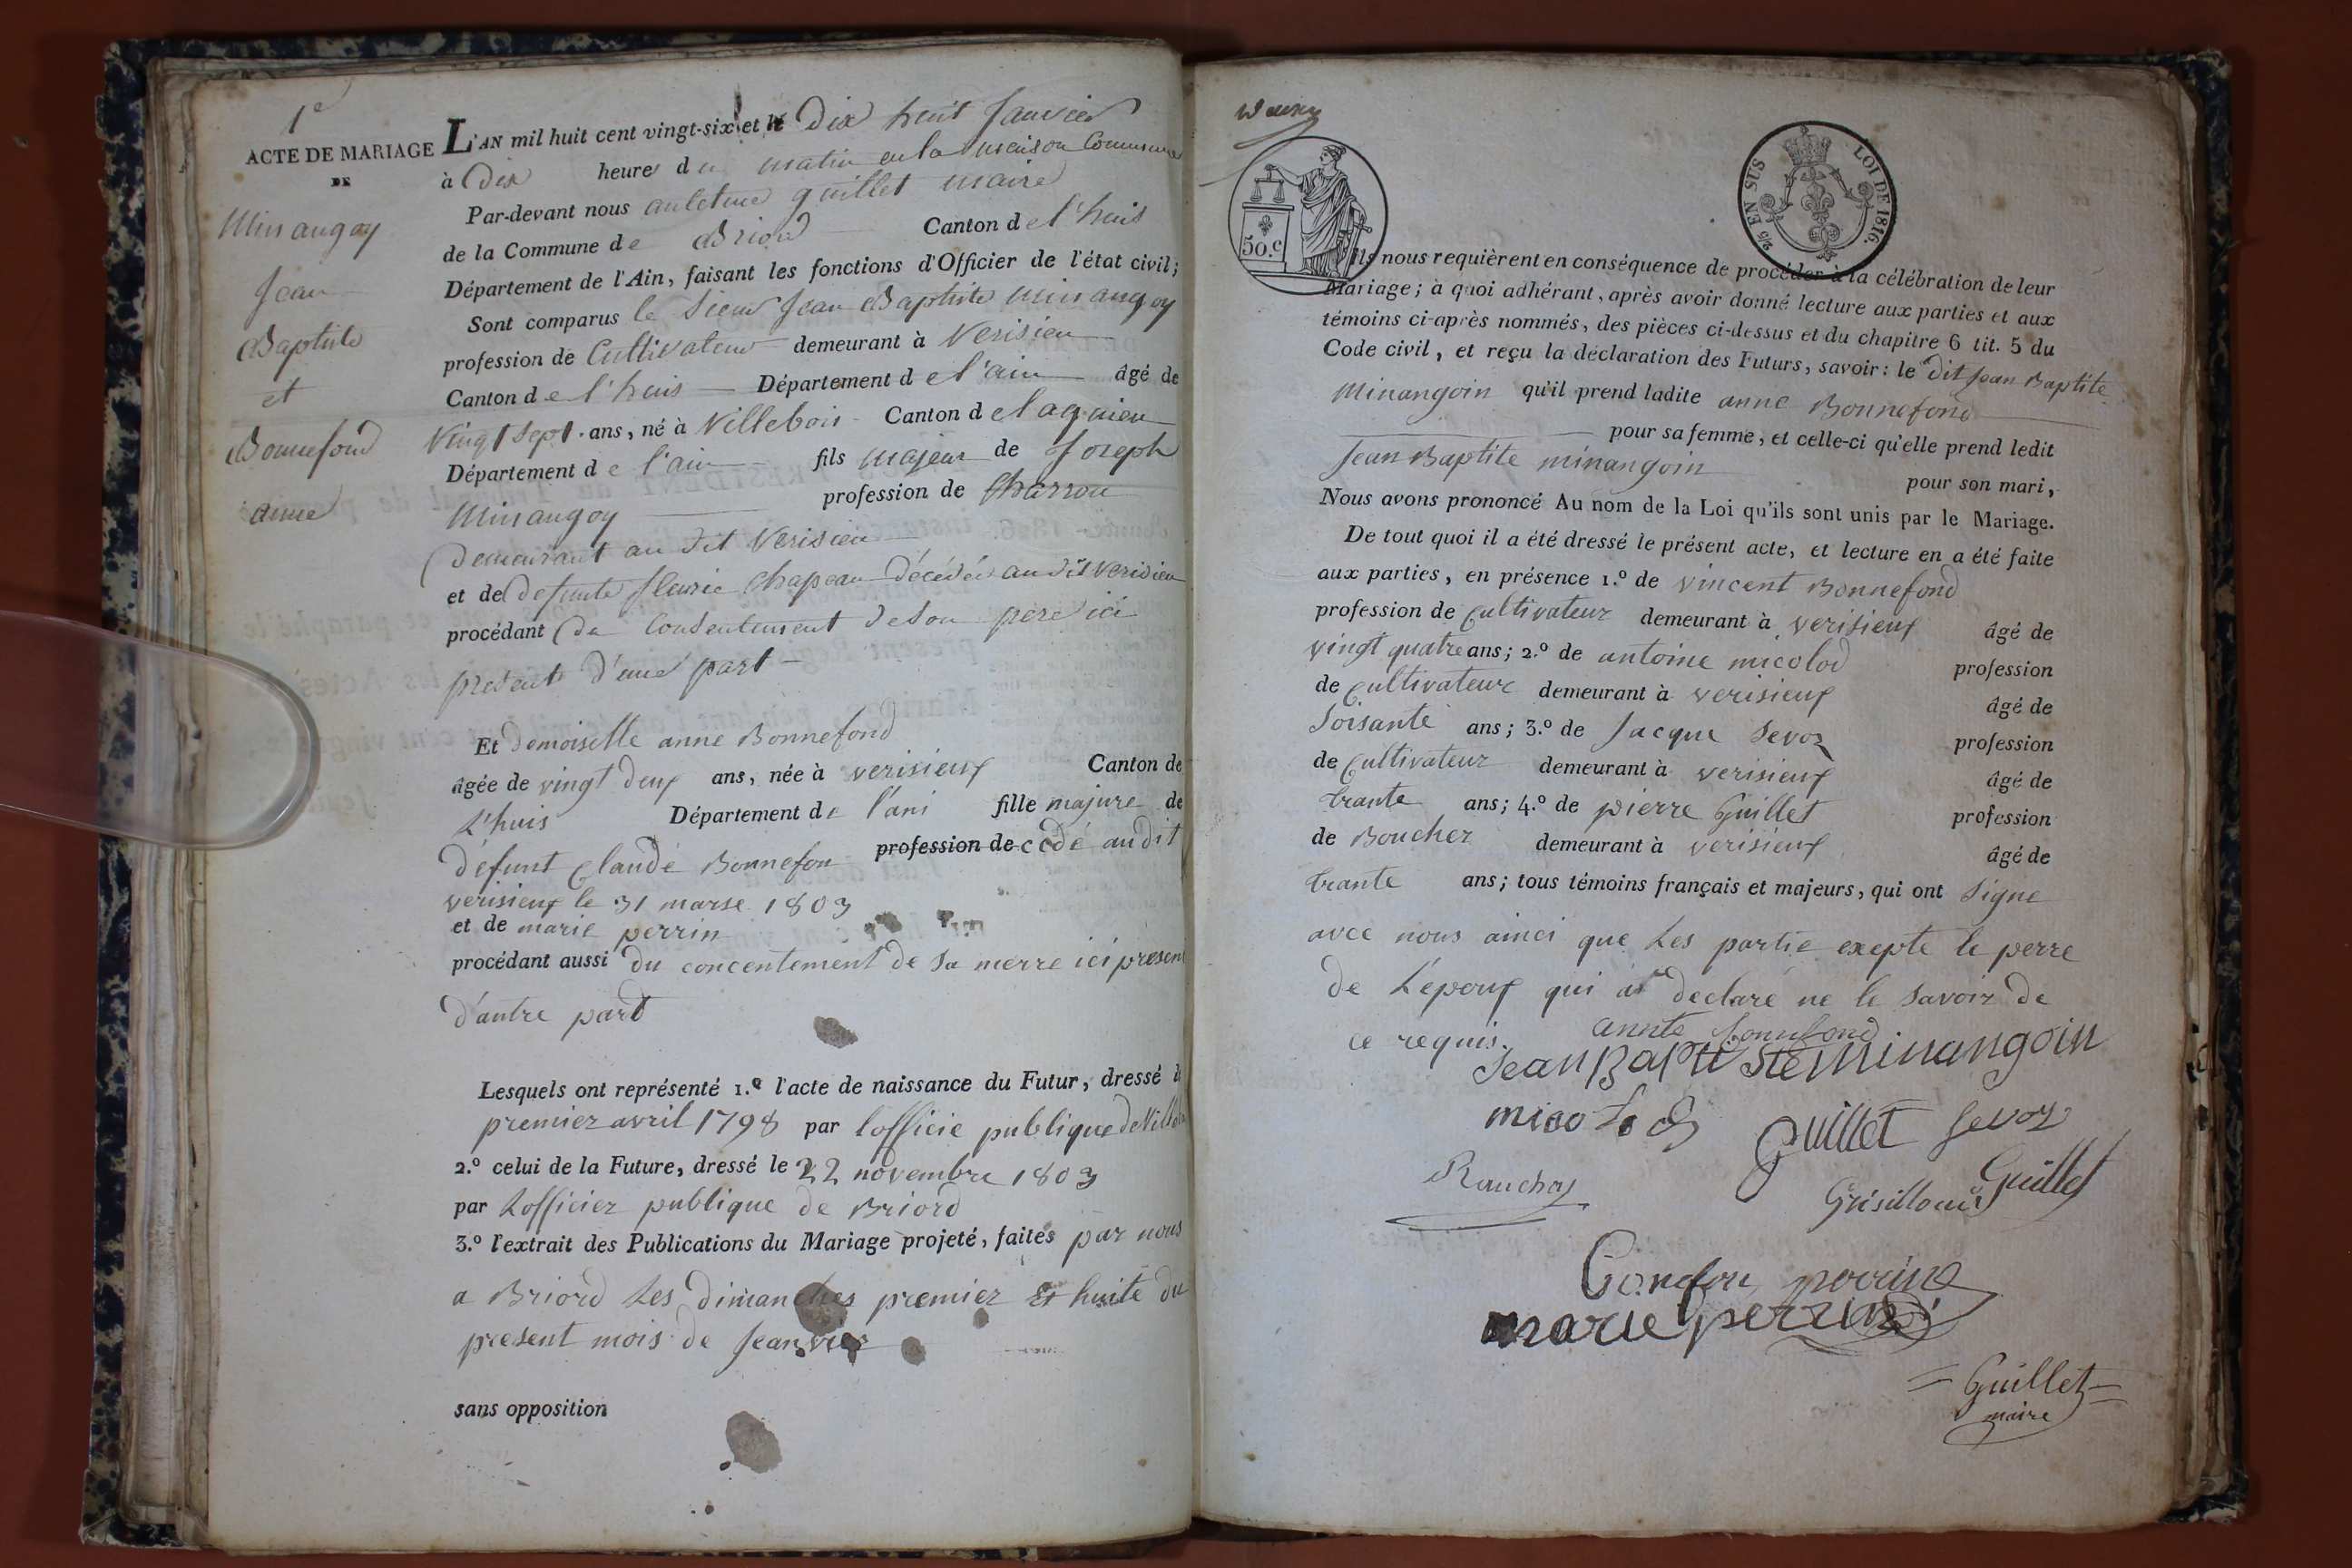 1e
ACTE DE MARIAGE
DE
Minangoy
Jean
Baptiste
et
Bonnefond
anne
L'AN mil huit cent vingt-six et le Dix huit Janvier
à Dix heure du matin en la maison Commune
Par-devant nous guillet maire
de la Commune de Briord Canton de l'huis
Département de l'Ain, faisant les fonctions d'Officier de l'état civil;
Sont comparus le Sieur Jean Baptiste Minangoy
profession de Cultivateur demeurant à Verisieu
Canton de l'huis Département de l'ain âgé de
Vingt Sept ans, né à Villebois Canton de lagnieu
Département de l'ain fils majeur de Joseph
Minangoy profession de Charron
Demeurant au dit Verisieu
et de Defunte fleurie Chapeau Décédée au dit verisieu
procédant du Consentement de son pere ici
present d'une part
Et demoiselle anne Bonnefond
âgée de vingt deux ans, née à verisieux Canton de
L'huis Département de l'ani fille majure de
défunt Claude Bonnefon profession de cédé audit
verisieux le 31 marse 1803
et de marie perrin
procédant aussi du concentement de sa merre ici present
d'autre part
Lesquels ont représenté 1.º l'acte de naissance du Futur, dressé le
premier avril 1798 par lofficie publique de
2.º celui de la Future, dressé le 22 novembre 1803
par Lofficier publique de Briord
3.º l'extrait des Publications du Mariage projeté, faites par nous
a Briord Les Dimanches premier Et huite du
present mois de Jeanvier
sans opposition
50.c
5/6 EN SUS
LOI DE 1816.
Ils nous requièrent en conséquence de procéder à la célébration de leur
Mariage; à quoi adhérant, après avoir donné lecture aux parties et aux
témoins ci-après nommés, des pièces ci-dessus et du chapitre 6 tit. 5 du
Code civil, et reçu la déclaration des Futurs, savoir: le dit Jean Baptite
Minangoin qu'il prend ladite anne Bonnefond
pour sa femme, et celle-ci qu'elle prend ledit
Jean Baptite minangoin pour son mari,
Nous avons prononcé Au nom de la Loi qu'ils sont unis par le Mariage.
De tout quoi il a été dressé le présent acte, et lecture en a été faite
aux parties, en présence 1.º de vincent Bonnefond
profession de Cultivateur demeurant à verisieux âgé de
vingt quatre ans; 2.º de antoine micolod profession
de Cultivateur demeurant à verisieux âgé de
Soisante ans; 3.º de Jacque Sevoz profession
de Cultivateur demeurant à verisieux âgé de
trante ans; 4.º de pierre Guillet profession
de Boucher demeurant à verisieux âgé de
trante ans; tous témoins français et majeurs, qui ont signe
avec nous ainci que Les partie exepte le perre
de L'epoux qui a declaré ne le savoir de
ce requis.
Jean Baptiste Minangoin
guillet Sevoz
Guillet
marie perrin
Guillet
maire